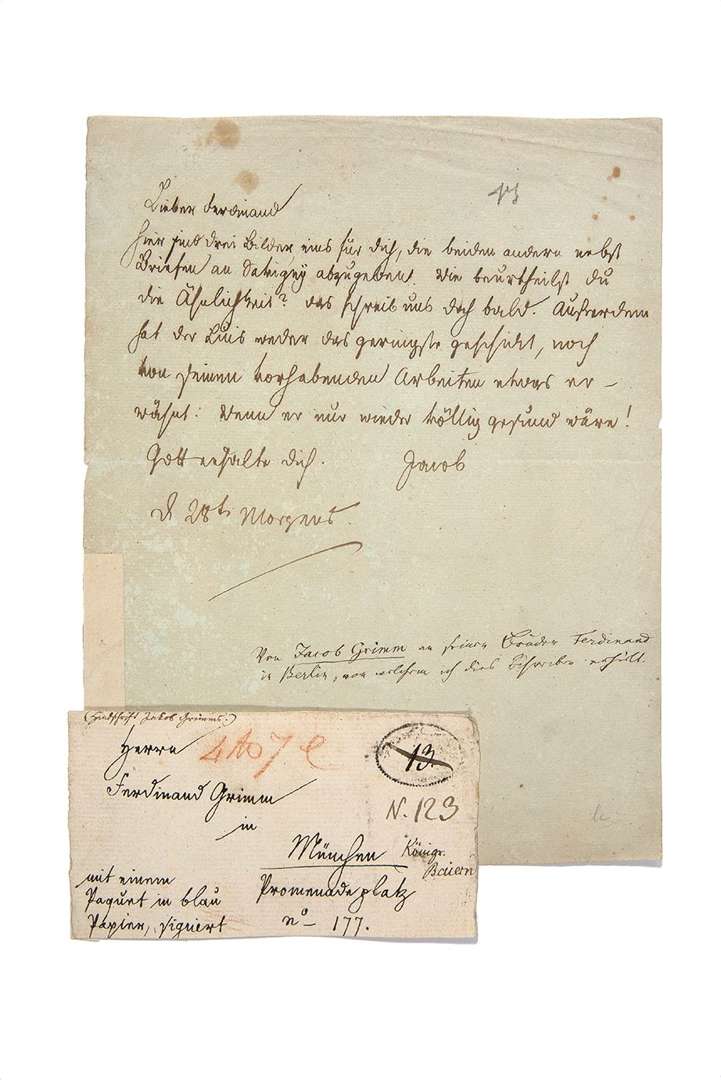 Lieber Ferdinand
hier sind drei Bilder eins für dich, die beiden andern nebst
Briefen an Savigny abzugeben. Wie beurtheilst du
die Ähnlichkeit? das schreib uns doch bald. Außerdem
hat der Luis weder das geringste geschickt, noch
von seinen vorhabenden Arbeiten etwas er-
wähnt: Wenn er nur wieder völlig gesund wäre!
Gott erhalte dich. Jacob
d 28t Morgens.
Von Jacob Grimm an seinen Bruder Ferdinand
in Berlin, von welchem ich dies Schreiben erhielt.
(Handschrift Jakob Grimms.)
Herrn
13.
Ferdinand Grimm
N. 123
in
München
Königr.
Baiern
mit einem
Paquet in blau
Papier, signiert
Promenadeplatz
no 177.